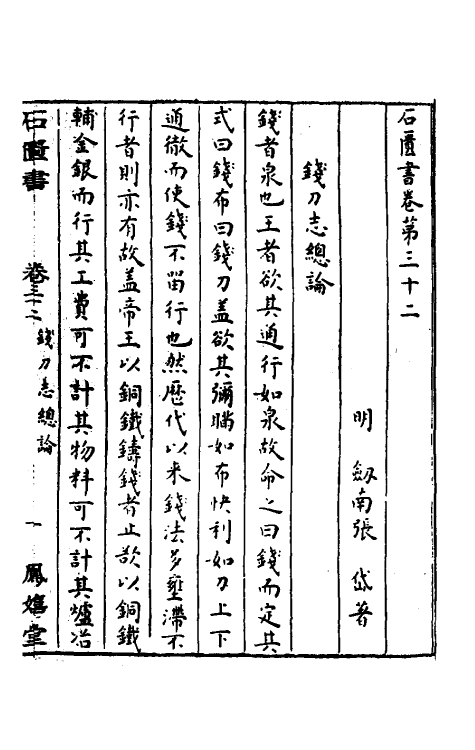 石匱書卷第三十二
明 劔南張 岱著
錢刀志總論
錢者泉也王者欲其通行如泉故命之曰錢而定其
式曰錢布曰錢刀盖欲其彌瞞如布快利如刀上下
通徹而使錢不留行也然歷代以来錢法多壅滯不
行者則亦有故盖帝王以銅鐵鑄錢者止欲以銅鐵
輔金銀而行其工費可不計其物料可不計其爐冶
石匱書 卷三十二 錢刀志總論 一 鳳嬉堂